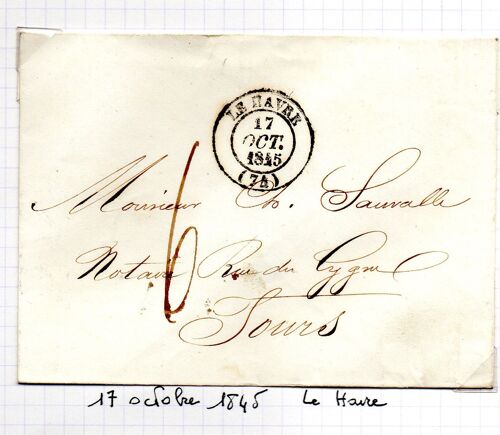 LE HAVRE
17
OCT.
1845
(74)
Monsieur Ch. Sauvalle
6
Notaire Rue du Cygne
Tours
17 octobre 1845 Le Havre